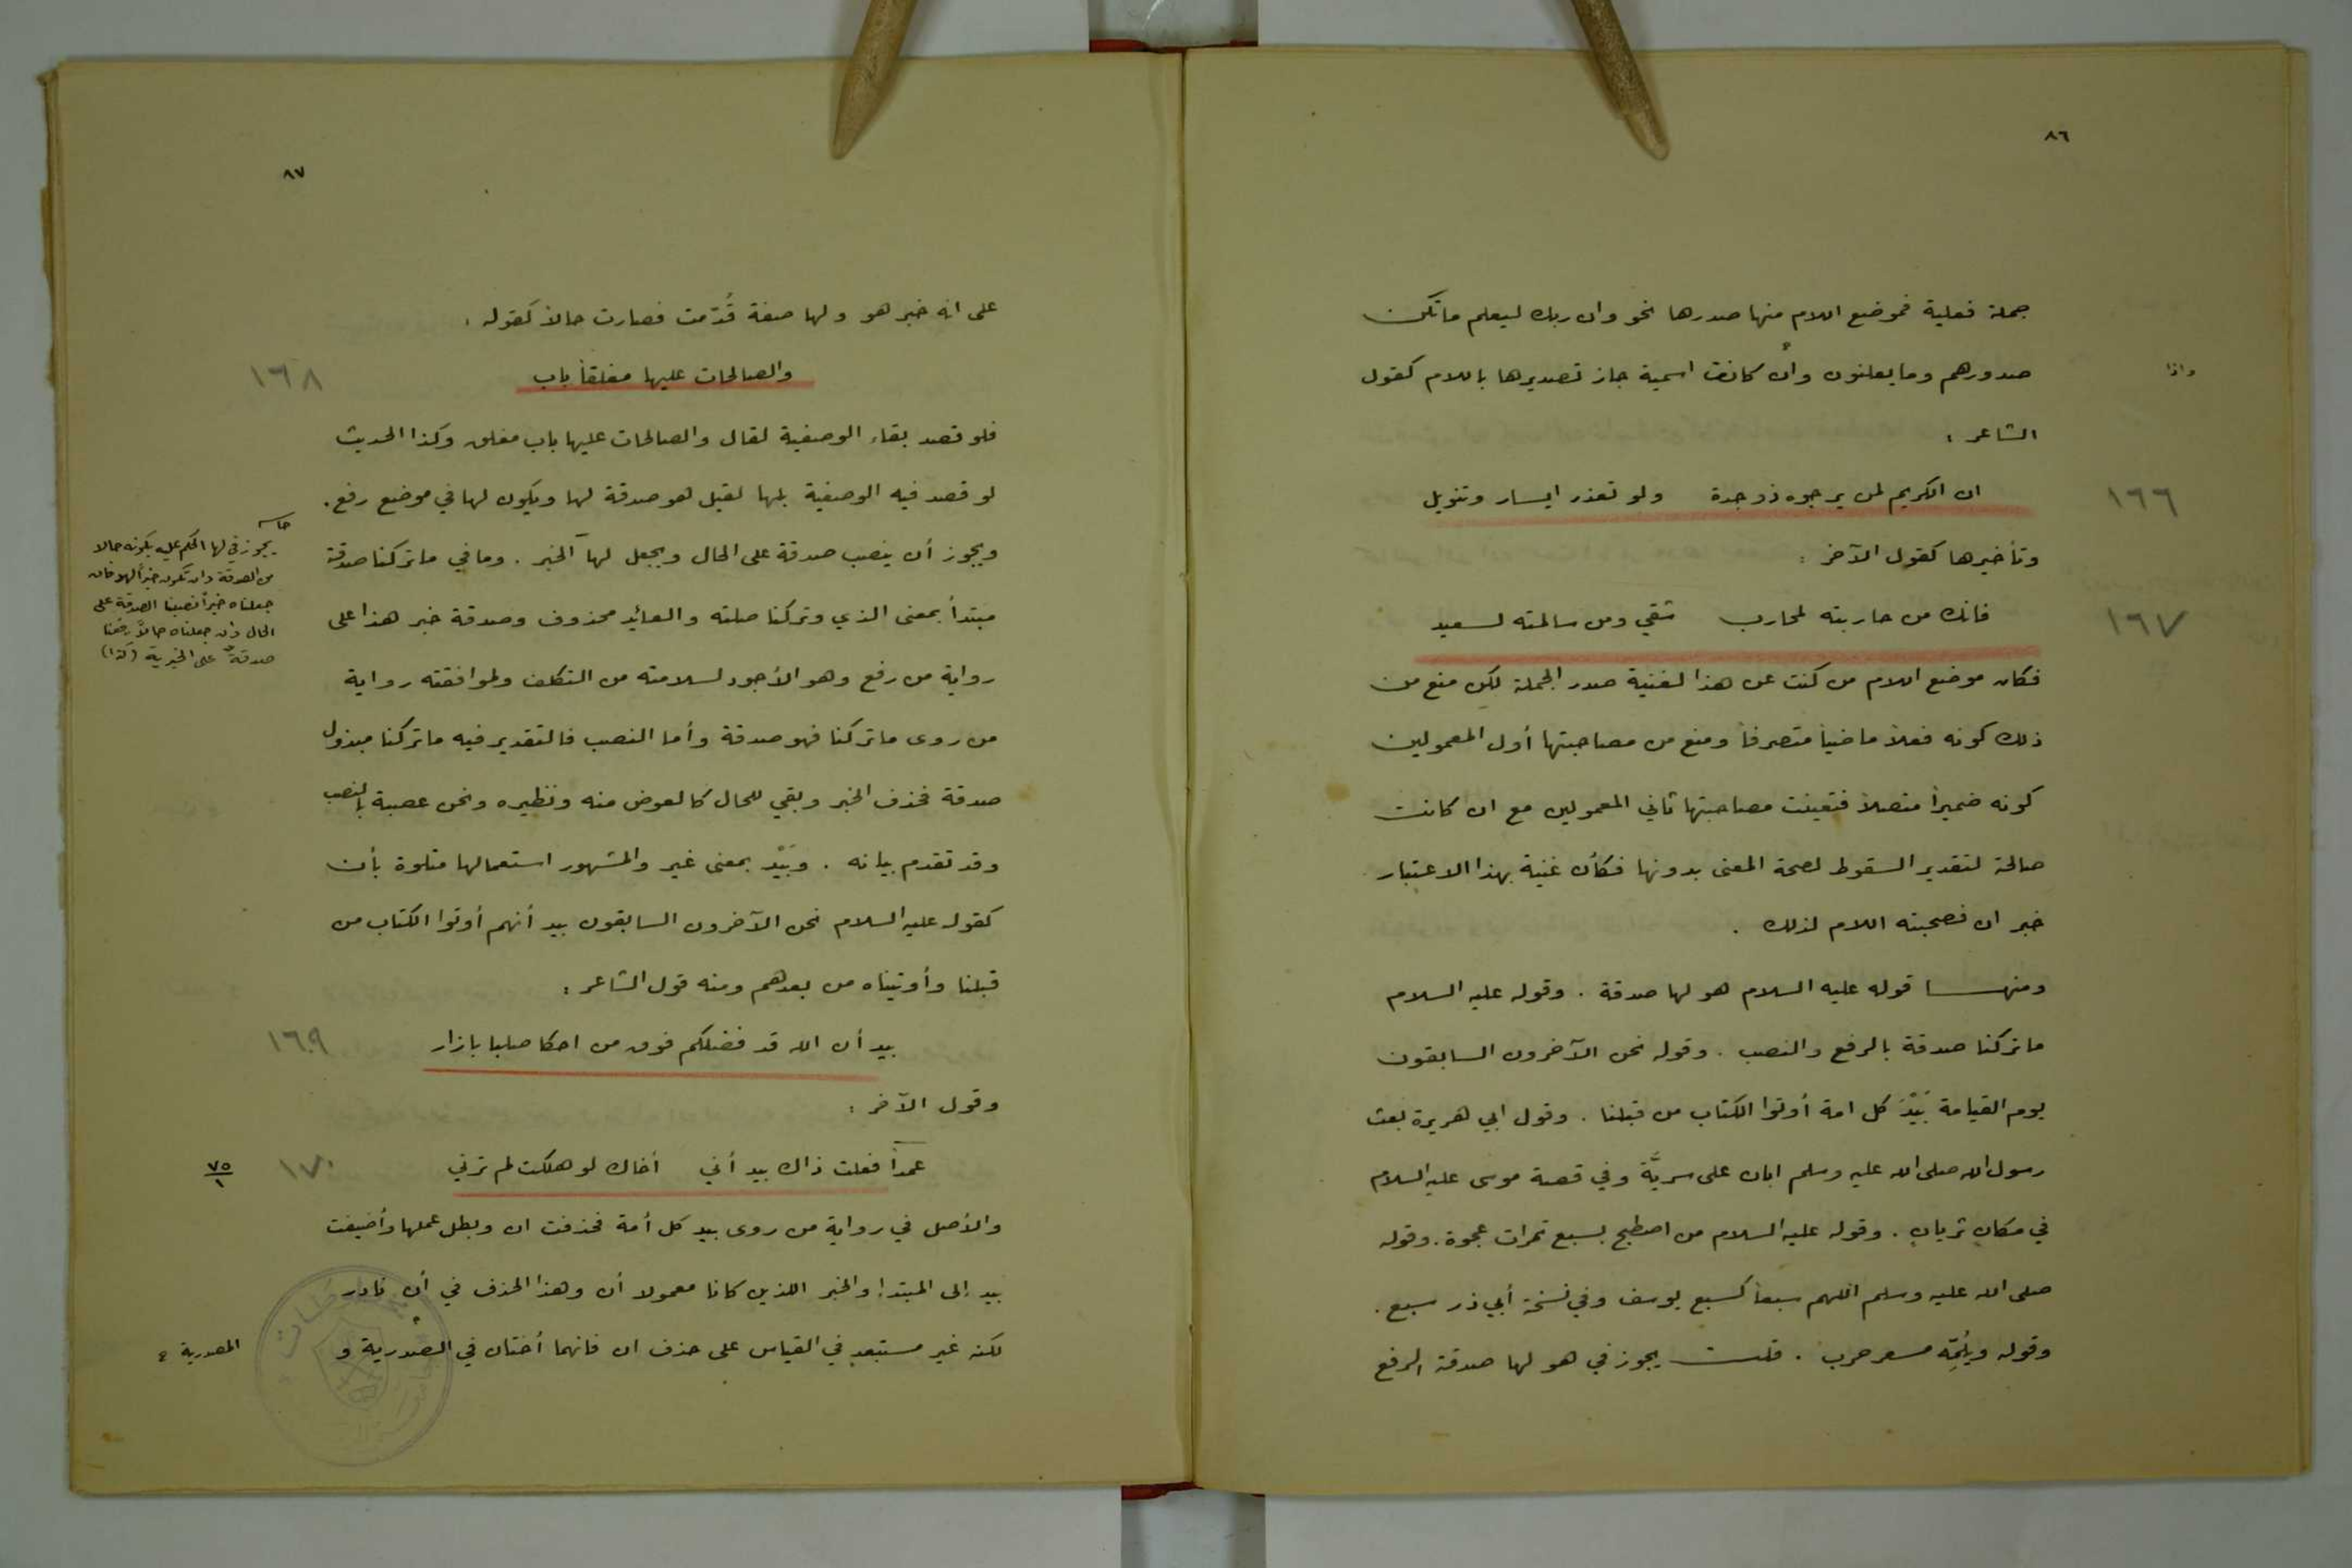 ٨٦
جملة فعلية فموضع اللام منها صدرها نحو وان ربك ليعلم ما تكن
صدورهم وما يعلنون وان كانت اسمية جاز تصديرها باللام كقول
واذا
الشاعر :
ان الكريم لمن يرجوه ذو جدة ولو تعذر ايسار وتنويل
١٦٦
وتأخيرها كقول الآخر :
فانك من حاربته لمحارب شقي ومن سالمته لسعيد
١٦٧
فكان موضع اللام من كنت عن هذا لغنية صدر الجملة لكن منع من
ذلك كونه فعلاً ماضياً متصرفاً ومنع من مصاحبتها أول المعمولين
كونه ضميراً متصلاً فتعينت مصاحبتها ثاني المعمولين مع ان كانت
صالحة لتقدير السقوط لصحة المعنى بدونها فكأن غنية بهذا الاعتبار
خبر ان فصحبته اللام لذلك .
ومنهــا قوله عليه السلام هو لها صدقة . وقوله عليه السلام
ما تركنا صدقة بالرفع والنصب . وقوله نحن الآخرون السابقون
يوم القيامة بَيْدَ كل امة أوتوا الكتاب من قبلنا . وقول ابي هريرة بعث
رسول الله صلى الله عليه وسلم ابان على سريَّة وفي قصة موسى عليه السلام
في مكان ثريان . وقوله عليه السلام من اصطبح بسبع تمرات عجوة . وقوله
صلى الله عليه وسلم اللهم سبعاً كسبع يوسف وفي نسخة أبي ذر سبع .
وقوله ويلُمِّه مسعر حرب . قلت يجوز في هو لها صدقة الرفع
٨٧
على انه خبر هو ولها صفة قُدّمت فصارت حالاً كقوله :
والصالحات عليها مغلقاً باب
١٦٨
فلو قصد بقاء الوصفية لقال والصالحات عليها باب مغلق وكذا الحديث
لو قصد فيه الوصفية بلها لقيل هو صدقة لها ويكون لها في موضع رفع .
ويجوز أن ينصب صدقة على الحال ويجعل لها الخبر . وما في ما تركنا صدقة
مبتدأ بمعنى الذي وتركنا صلته والعائد محذوف وصدقة خبر هذا على
رواية من رفع وهو الأجود لسلامته من التكلف ولموافقته رواية
من روى ما تركنا فهو صدقة وأما النصب فالتقدير فيه ما تركنا مبذول
صدقة فحذف الخبر وبقي للحال كالعوض منه ونظيره ونحن عصبة بالنصب
وقد تقدم بيانه . وبَيْد بمعنى غير والمشهور استعمالها متلوة بأن
كقوله عليه السلام نحن الآخرون السابقون بيد أنهم أوتوا الكتاب من
قبلنا وأوتيناه من بعدهم ومنه قول الشاعر :
بيد أن الله قد فضلكم فوق من احكا صلبا بازار
١٦٩
وقول الآخر :
عمداً فعلت ذاك بيد أني أخاك لو هلكت لم ترني
١٧٠
٧٥
١
والأصل في رواية من روى بيد كل أمة فحذفت ان وبطل عملها وأضيفت
بيد إلى المبتدا والخبر اللذين كانا معمولا أن وهذا الحذف في أن نادر
لكنه غير مستبعد في القياس على حذف ان فانهما أختان في المصدرية و
المصدرية
يجوز في لها الحكم عليه بكونه حالا
من الصدقة وان تكون خبراً لهو فان
جعلناه خبراً نصبنا الصدقة على
الحال وان جعلناه حالاً رفعنا
صدقة على الخبرية (كذا)